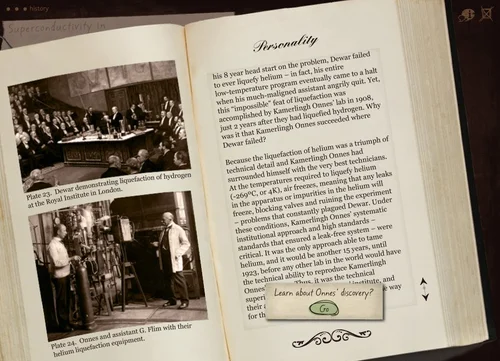 history
Superconductivity in
Plate 23. Dewar demonstrating liquefaction of hydrogen
at the Royal Institute in London.
Plate 24. Onnes and assistant G. Flim with their
helium liquefaction equipment.
Personality
his 8 year head start on the problem, Dewar failed
to ever liquefy helium – in fact, his entire
low-temperature program eventually came to a halt
when his much-maligned assistant angrily quit. Yet,
this "impossible" feat of liquefaction was
accomplished by Kamerlingh Onnes' lab in 1908,
just 2 years after they had liquefied hydrogen. Why
was it that Kamerlingh Onnes succeeded where
Dewar failed?
Because the liquefaction of helium was a triumph of
technical detail and Kamerlingh Onnes had
surrounded himself with the very best technicians.
At the temperatures required to liquefy helium
(-269°C, or 4K), air freezes, meaning that any leaks
in the apparatus or impurities in the helium will
freeze, blocking valves and ruining the experiment
– problems that constantly plagued Dewar. Under
these conditions, Kamerlingh Onnes' systematic
institutional approach and high standards –
standards that ensured a leak-free system – were
critical. It was the only approach able to tame
helium, and it would be another 15 years, until
1923, before any other lab in the world would have
the technical ability to reproduce Kamerlingh
Onnes' Thus, it was the technical
super institute, and
their way
for th
Learn about Onnes' discovery?
Go